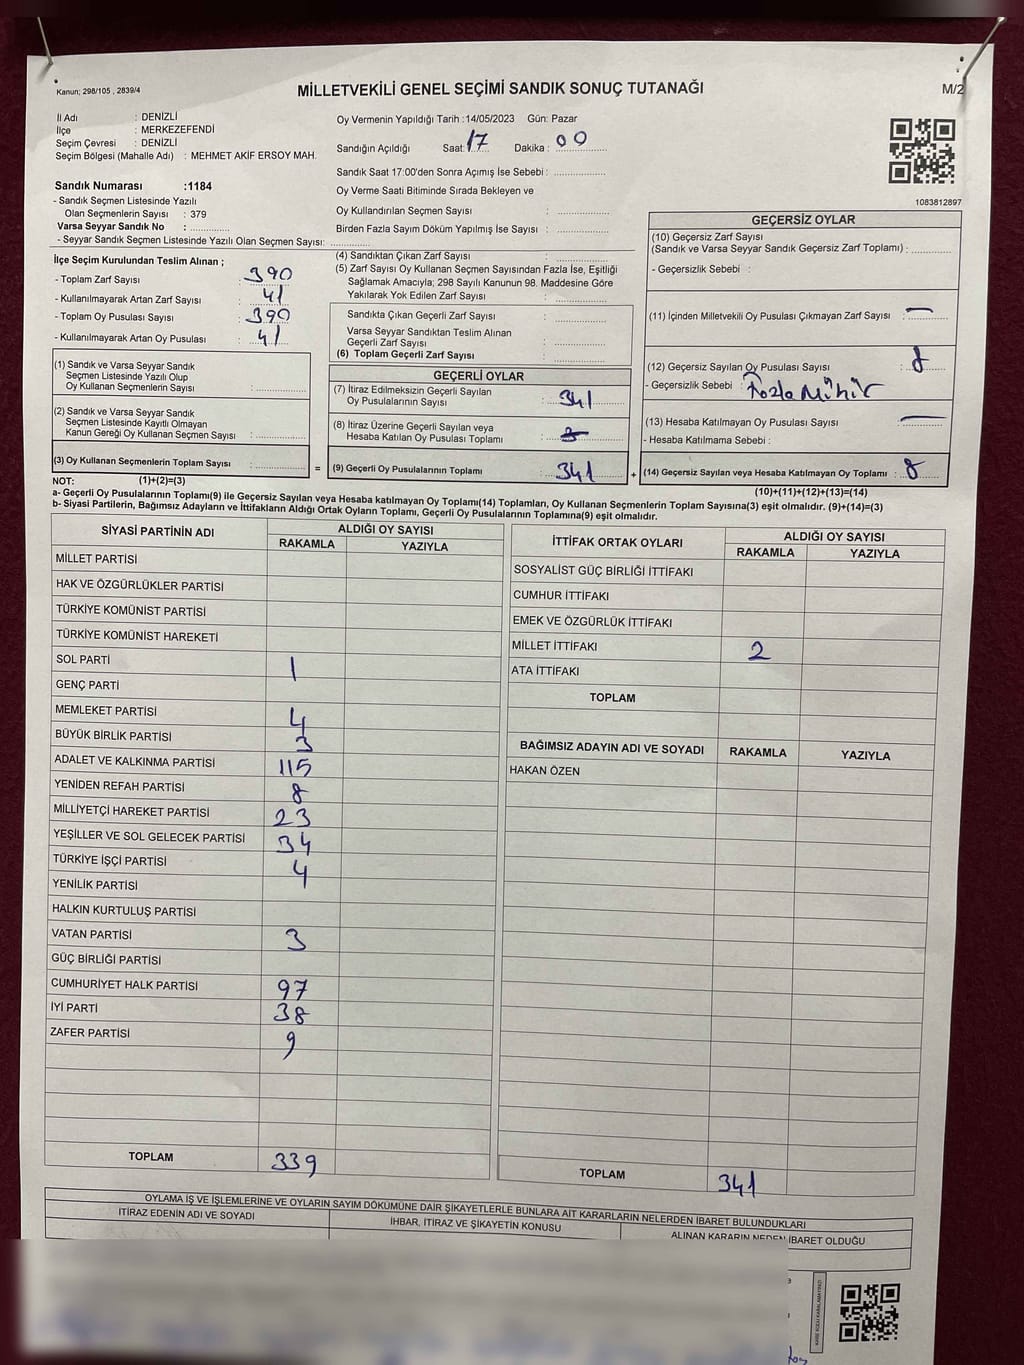 Kanun; 298/105 , 2839/4
MİLLETVEKİLİ GENEL SEÇİMİ SANDIK SONUÇ TUTANAĞI
M/2
İl Adı : DENİZLİ
İlçe : MERKEZEFENDİ
Seçim Çevresi : DENİZLİ
Seçim Bölgesi (Mahalle Adı) : MEHMET AKİF ERSOY MAH.
Sandık Numarası :1184
- Sandık Seçmen Listesinde Yazılı
Olan Seçmenlerin Sayısı : 379
Varsa Seyyar Sandık No :
- Seyyar Sandık Seçmen Listesinde Yazılı Olan Seçmen Sayısı:
Oy Vermenin Yapıldığı Tarih :14/05/2023 Gün: Pazar
Sandığın Açıldığı Saat: 17 Dakika : 00
Sandık Saat 17:00'den Sonra Açımış İse Sebebi :
Oy Verme Saati Bitiminde Sırada Bekleyen ve
Oy Kullandırılan Seçmen Sayısı :
Birden Fazla Sayım Döküm Yapılmış İse Sayısı :
1083812897
İlçe Seçim Kurulundan Teslim Alınan ;
- Toplam Zarf Sayısı : 390
- Kullanılmayarak Artan Zarf Sayısı : 41
- Toplam Oy Pusulası Sayısı : 390
- Kullanılmayarak Artan Oy Pusulası : 41
(1) Sandık ve Varsa Seyyar Sandık
Seçmen Listesinde Yazılı Olup
Oy Kullanan Seçmenlerin Sayısı :
(2) Sandık ve Varsa Seyyar Sandık
Seçmen Listesinde Kayıtlı Olmayan
Kanun Gereği Oy Kullanan Seçmen Sayısı :
(3) Oy Kullanan Seçmenlerin Toplam Sayısı :
(4) Sandıktan Çıkan Zarf Sayısı :
(5) Zarf Sayısı Oy Kullanan Seçmen Sayısından Fazla İse, Eşitliği
Sağlamak Amacıyla; 298 Sayılı Kanunun 98. Maddesine Göre
Yakılarak Yok Edilen Zarf Sayısı :
Sandıkta Çıkan Geçerli Zarf Sayısı :
Varsa Seyyar Sandıktan Teslim Alınan
Geçerli Zarf Sayısı :
(6) Toplam Geçerli Zarf Sayısı :
GEÇERLİ OYLAR
(7) İtiraz Edilmeksizin Geçerli Sayılan
Oy Pusulalarının Sayısı : 341
(8) İtiraz Üzerine Geçerli Sayılan veya
Hesaba Katılan Oy Pusulası Toplamı :
= (9) Geçerli Oy Pusulalarının Toplamı : 341 +
GEÇERSİZ OYLAR
(10) Geçersiz Zarf Sayısı
(Sandık ve Varsa Seyyar Sandık Geçersiz Zarf Toplamı) :
- Geçersizlik Sebebi :
(11) İçinden Milletvekili Oy Pusulası Çıkmayan Zarf Sayısı : —
(12) Geçersiz Sayılan Oy Pusulası Sayısı : 8
- Geçersizlik Sebebi : Fazla Mühür
(13) Hesaba Katılmayan Oy Pusulası Sayısı : —
- Hesaba Katılmama Sebebi :
(14) Geçersiz Sayılan veya Hesaba Katılmayan Oy Toplamı : 8
NOT: (1)+(2)=(3)
(10)+(11)+(12)+(13)=(14)
a- Geçerli Oy Pusulalarının Toplamı(9) ile Geçersiz Sayılan veya Hesaba katılmayan Oy Toplamı(14) Toplamları, Oy Kullanan Seçmenlerin Toplam Sayısına(3) eşit olmalıdır. (9)+(14)=(3)
b- Siyasi Partilerin, Bağımsız Adayların ve İttifakların Aldığı Ortak Oyların Toplamı, Geçerli Oy Pusulalarının Toplamına(9) eşit olmalıdır.
SİYASİ PARTİNİN ADI ALDIĞI OY SAYISI
RAKAMLA YAZIYLA
MİLLET PARTİSİ
HAK VE ÖZGÜRLÜKLER PARTİSİ
TÜRKİYE KOMÜNİST PARTİSİ
TÜRKİYE KOMÜNİST HAREKETİ
SOL PARTİ 1
GENÇ PARTİ
MEMLEKET PARTİSİ 4
BÜYÜK BİRLİK PARTİSİ 3
ADALET VE KALKINMA PARTİSİ 115
YENİDEN REFAH PARTİSİ 8
MİLLİYETÇİ HAREKET PARTİSİ 23
YEŞİLLER VE SOL GELECEK PARTİSİ 34
TÜRKİYE İŞÇİ PARTİSİ 4
YENİLİK PARTİSİ
HALKIN KURTULUŞ PARTİSİ
VATAN PARTİSİ 3
GÜÇ BİRLİĞİ PARTİSİ
CUMHURİYET HALK PARTİSİ 97
İYİ PARTİ 38
ZAFER PARTİSİ 9
TOPLAM 339
İTTİFAK ORTAK OYLARI ALDIĞI OY SAYISI
RAKAMLA YAZIYLA
SOSYALİST GÜÇ BİRLİĞİ İTTİFAKI
CUMHUR İTTİFAKI
EMEK VE ÖZGÜRLÜK İTTİFAKI
MİLLET İTTİFAKI 2
ATA İTTİFAKI
TOPLAM
BAĞIMSIZ ADAYIN ADI VE SOYADI RAKAMLA YAZIYLA
HAKAN ÖZEN
TOPLAM 341
OYLAMA İŞ VE İŞLEMLERİNE VE OYLARIN SAYIM DÖKÜMÜNE DAİR ŞİKAYETLERLE BUNLARA AİT KARARLARIN NELERDEN İBARET BULUNDUKLARI
İTİRAZ EDENİN ADI VE SOYADI İHBAR, İTİRAZ VE ŞİKAYETİN KONUSU ALINAN KARARIN NEDEN İBARET OLDUĞU